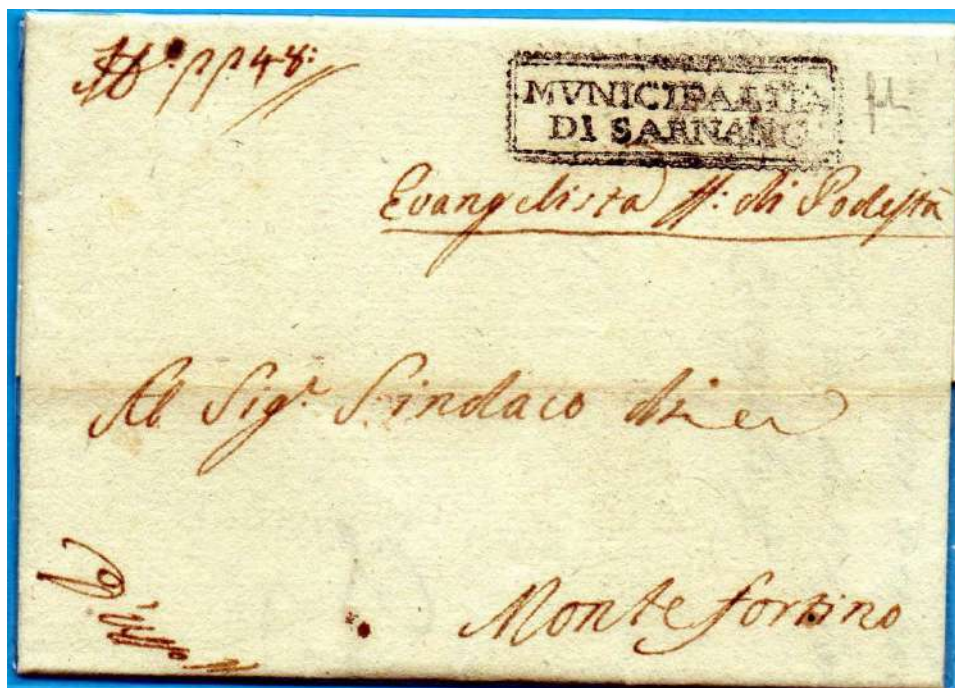 MVNICIPALITA
DI SARNANO
Evangelista ff: di Podestà
Al Sig.r Sindaco di
Monte fortino